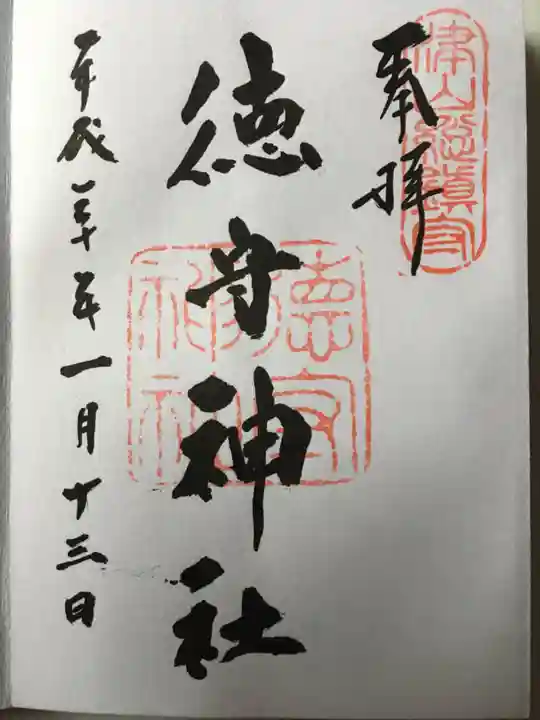 奉拝
津山総鎮守
徳守神社
徳守神社
平成三十年一月十三日